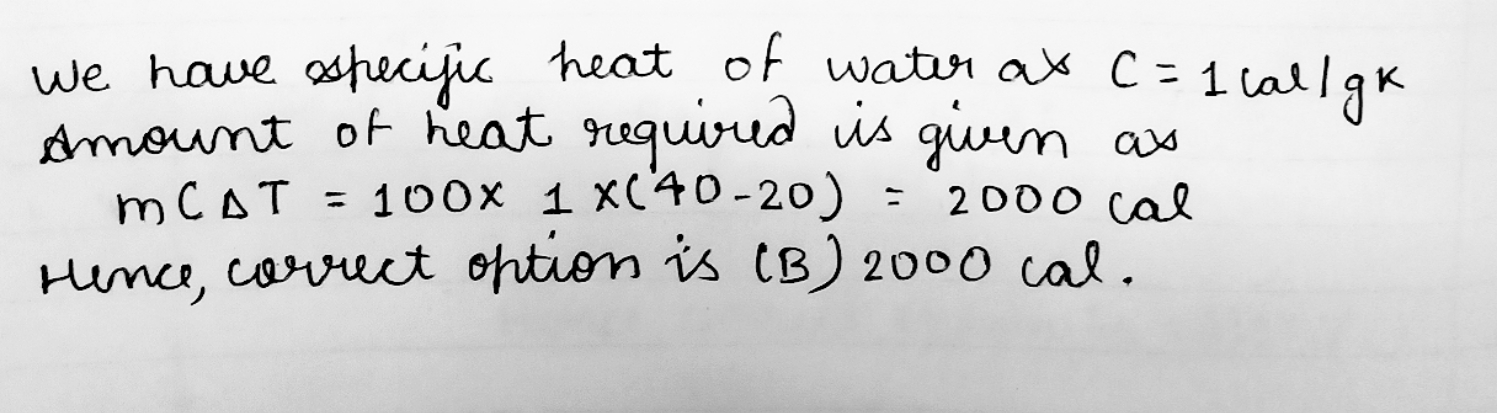 We have specific heat of water as C = 1 cal/gK
Amount of heat required is given as
mCΔT = 100x 1 x(40-20) = 2000 cal
Hence, correct option is (B) 2000 cal.